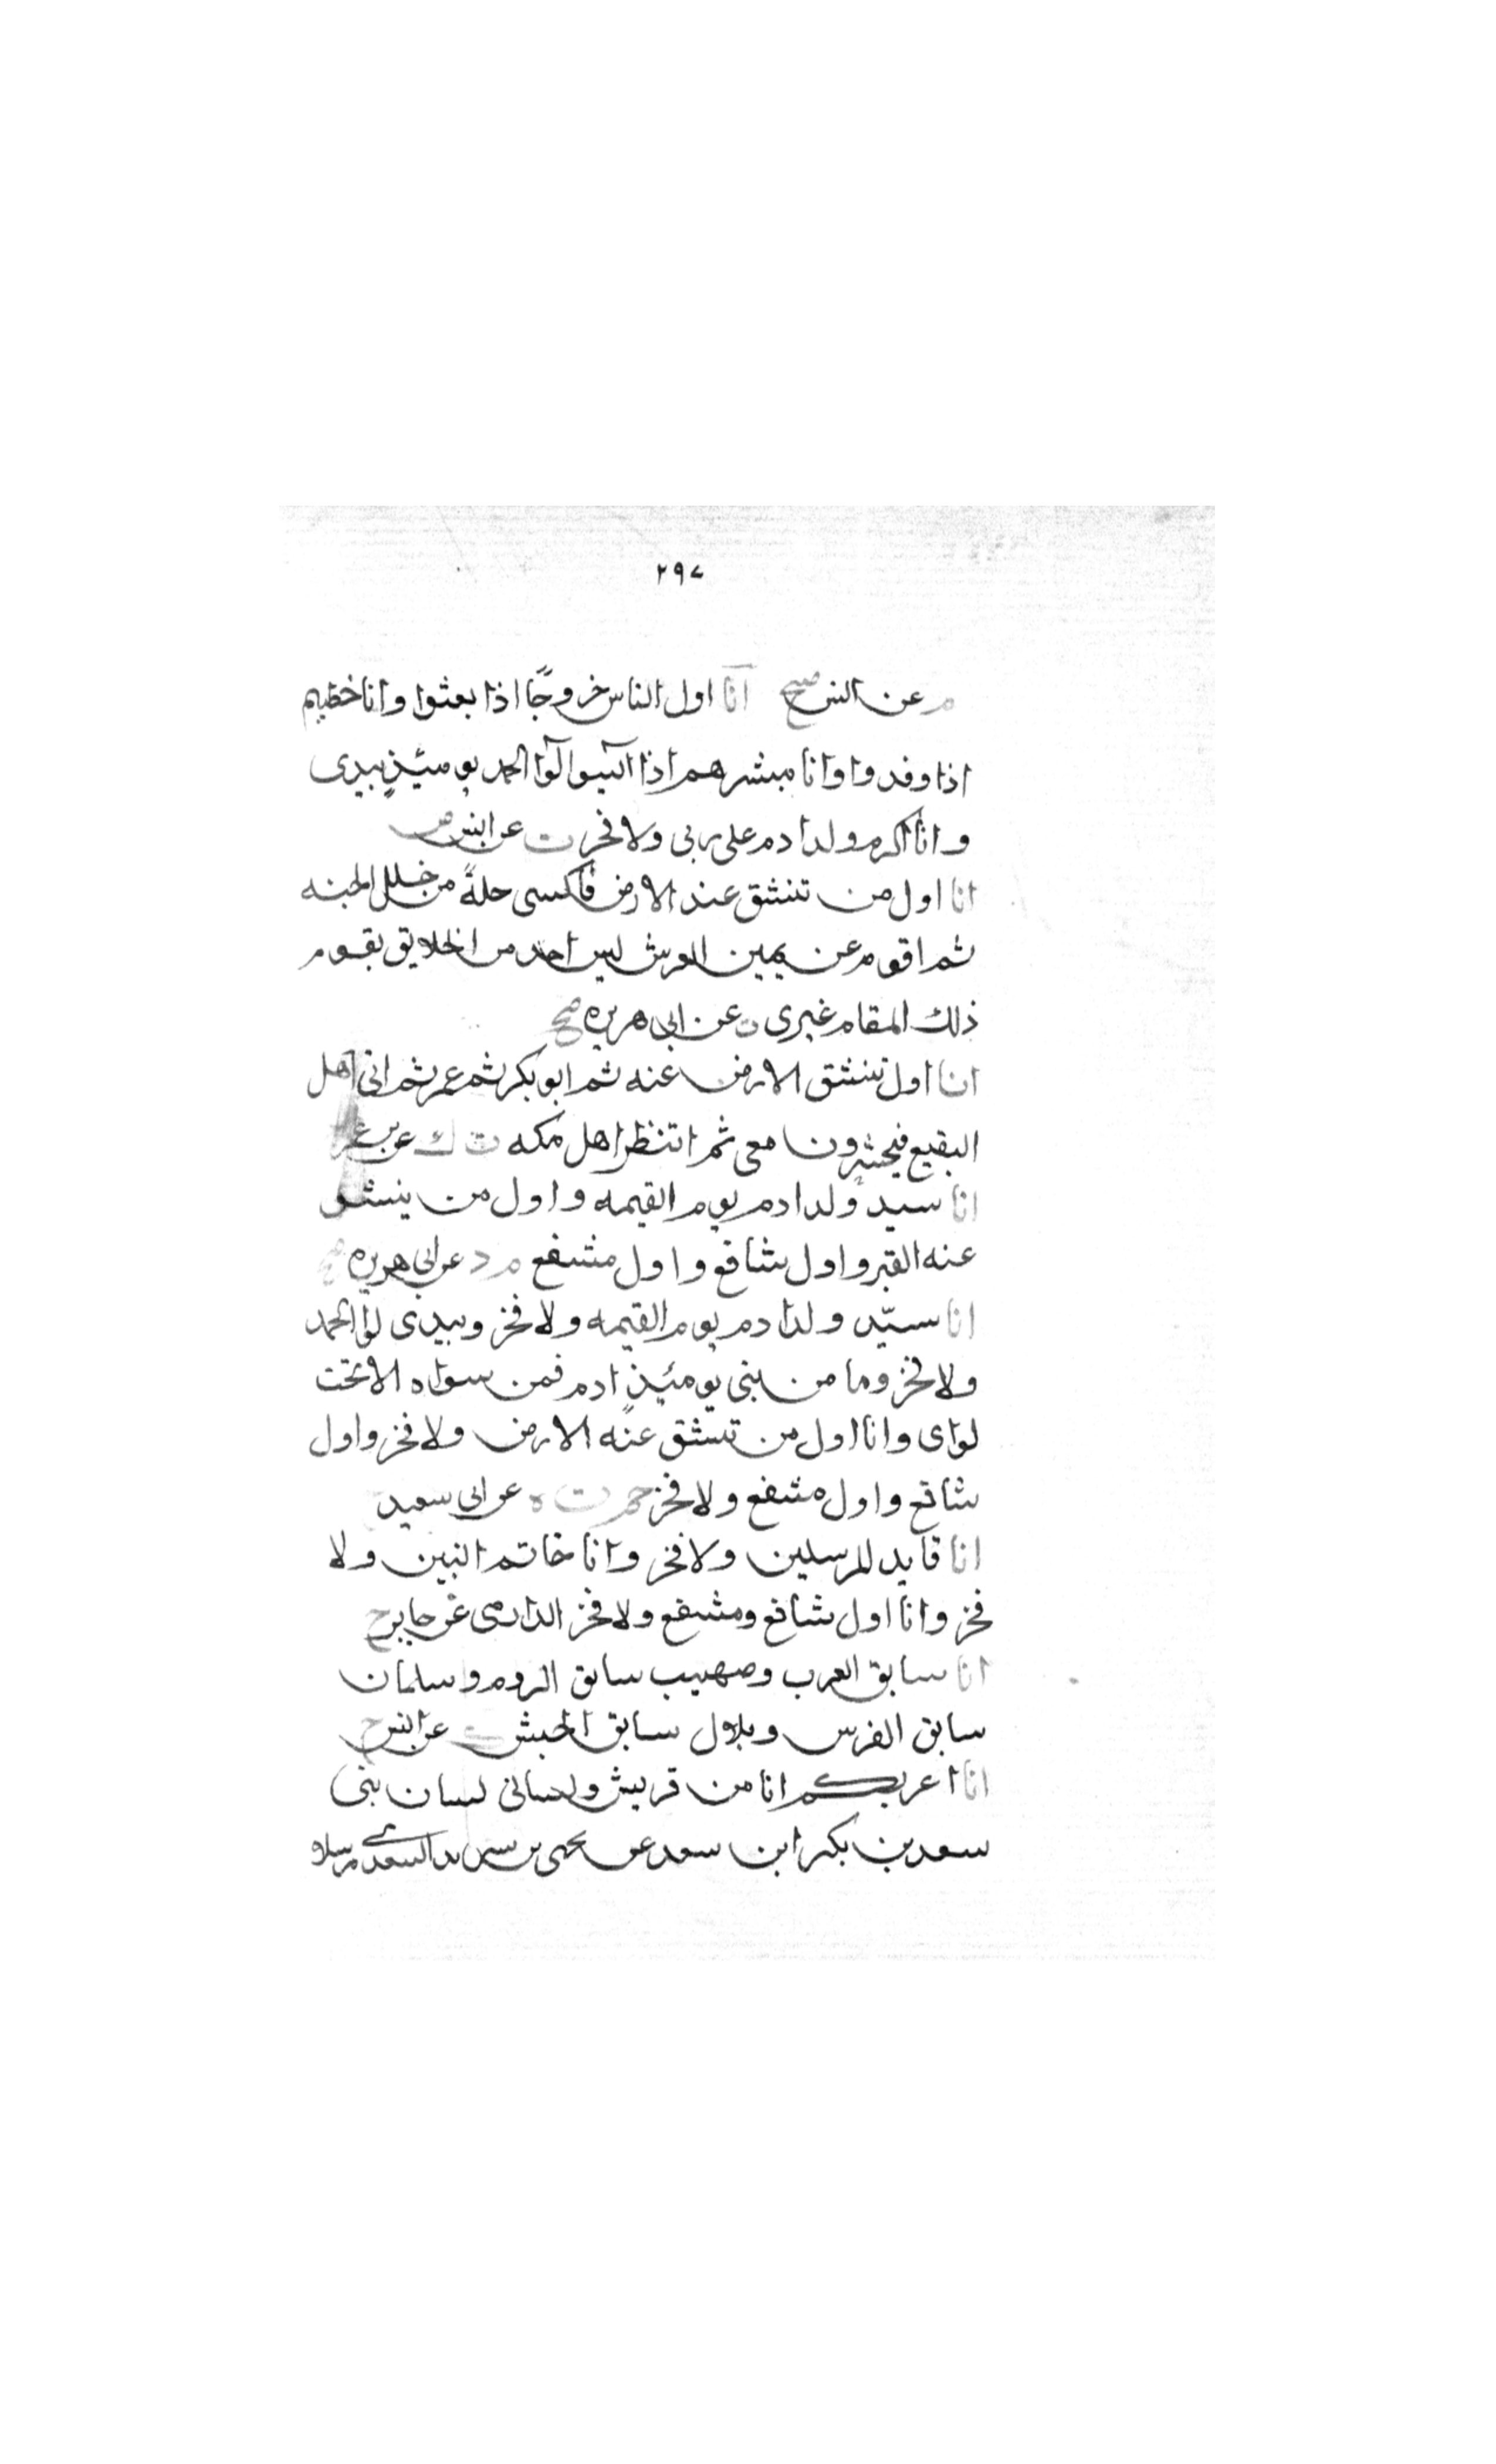 ٢٩٧
م عن انس صح انا اول الناس خروجًا اذا بعثوا وانا خطيبهم
اذا وفدوا وانا مبشرهم اذا ائيسوا لوآ الحمد يومئذٍ بيدى
وانا اكرم ولد ادم على ربى ولا فخر ت عن انس
انا اول من تنشق عند الارض فاكسى حلةً من حلل الجنه
ثم اقوم عن يمين العرش ليس احد من الخلايق يقوم
ذلك المقام غيرى ت عن ابى هريره صح
انا اول تنشق الارض عنه ثم ابو بكر ثم عمر ثم اتى اهل
البقيع فيحشرون معى ثم انتظر اهل مكه ت ك عن
انا سيد ولد ادم يوم القيمه واول من ينشق
عنه القبر واول شافع واول مشفع م د عن ابى هريره صح
انا سيّد ولد ادم يوم القيمه ولا فخر وبيدى لوا الحمد
ولا فخر وما من نبى يومئذٍ ادم فمن سواه الا تحت
لواى وانا اول من تنشق عنه الارض ولا فخر واول
شافع واول مشفع ولا فخر حم ت ه عن ابى سعيد
انا قايد المرسلين ولا فخر وانا خاتم النبين ولا
فخر وانا اول شافع ومشفع ولا فخر الدارمى عن جابر ح
انا سابق العرب وصهيب سابق الروم وسلمان
سابق الفرس وبلال سابق الحبش عن انس ح
انا اعربكم انا من قريش ولسانى لسان بنى
سعد بن بكر ابن سعد عن يحيى بن السعدى مرسلا